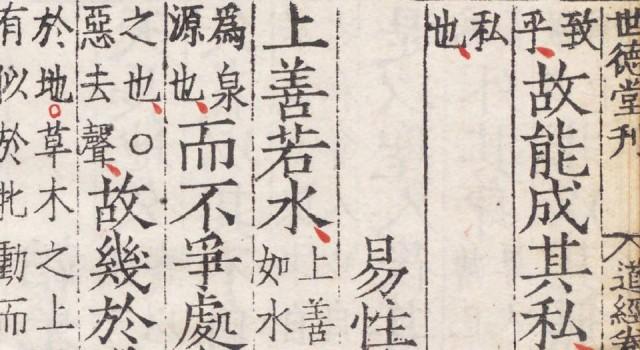 世德堂刊 八 道經
致乎故能成其私
私也
易性
上善若水上善如水
爲泉源也而不爭處
之也○惡去聲故幾於
於地草木之上
有似於牝動而